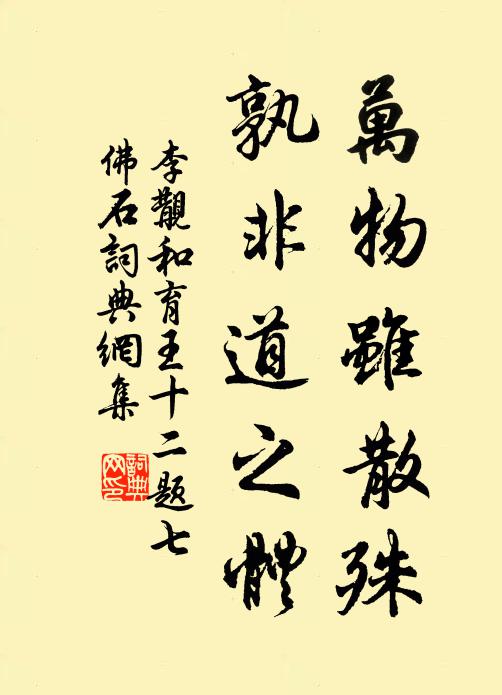 萬物雖散殊
孰非道之體
李覯和育王十二题七
佛石詞典網集
詞典网印